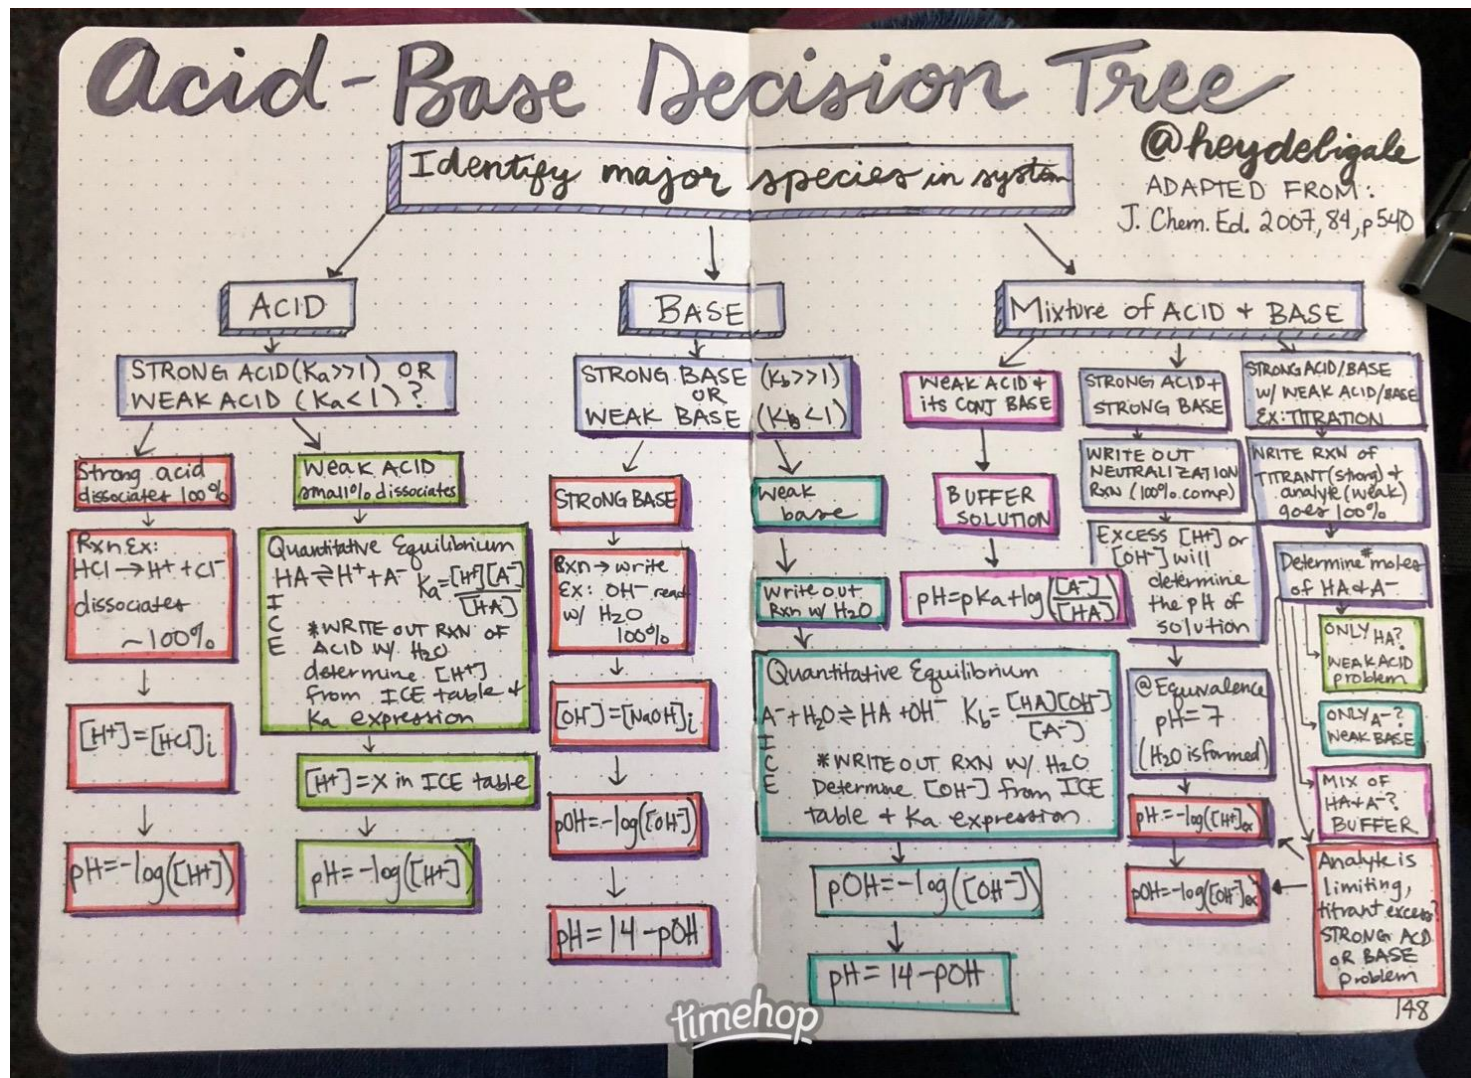 Acid-Base Decision Tree
@heydebigale
ADAPTED FROM:
J. Chem. Ed. 2007, 84, p540
Identify major species in system
ACID
STRONG ACID (Ka>>1) OR
WEAK ACID (Ka<1)?
Strong acid
dissociates 100%
Rxn Ex:
HCl → H⁺ + Cl⁻
dissociates
~100%
[H⁺]=[HCl]i
pH=-log([H⁺])
Weak ACID
small % dissociates
Quantitative Equilibrium
HA ⇌ H⁺ + A⁻ Ka=[H⁺][A⁻]/[HA]
I
C
E
*WRITE OUT RXN OF
ACID W/ H₂O
determine [H⁺]
from ICE table +
Ka expression
[H⁺]=X in ICE table
pH=-log([H⁺])
BASE
STRONG BASE (Kb>>1)
OR
WEAK BASE (Kb<1)
STRONG BASE
Rxn → write
Ex: OH⁻ react
w/ H₂O
100%
[OH⁻]=[NaOH]i
pOH=-log([OH⁻])
pH=14-pOH
Weak
base
Write out
Rxn w/ H₂O
Quantitative Equilibrium
A⁻ + H₂O ⇌ HA + OH⁻ Kb=[HA][OH⁻]/[A⁻]
I
C
E
*WRITE OUT RXN W/ H₂O
Determine [OH⁻] from ICE
table + Ka expression
pOH=-log([OH⁻])
pH=14-pOH
Mixture of ACID + BASE
WEAK ACID +
its CONJ BASE
BUFFER
SOLUTION
pH=pKa+log([A⁻]/[HA])
STRONG ACID +
STRONG BASE
WRITE OUT
NEUTRALIZATION
Rxn (100% comp)
EXCESS [H⁺] or
[OH⁻] will
determine
the pH of
solution
@Equivalence
pH=7
(H₂O is formed)
pH=-log([H⁺]ex
pOH=-log([OH⁻]ex
STRONG ACID/BASE
w/ WEAK ACID/BASE
EX: TITRATION
WRITE RXN OF
TITRANT (strong) +
analyte (weak)
goes 100%
Determine # moles
of HA & A⁻
ONLY HA?
WEAK ACID
problem
ONLY A⁻?
WEAK BASE
MIX OF
HA + A⁻?
BUFFER
Analyte is
limiting,
titrant excess?
STRONG ACD
OR BASE
problem
148
timehop